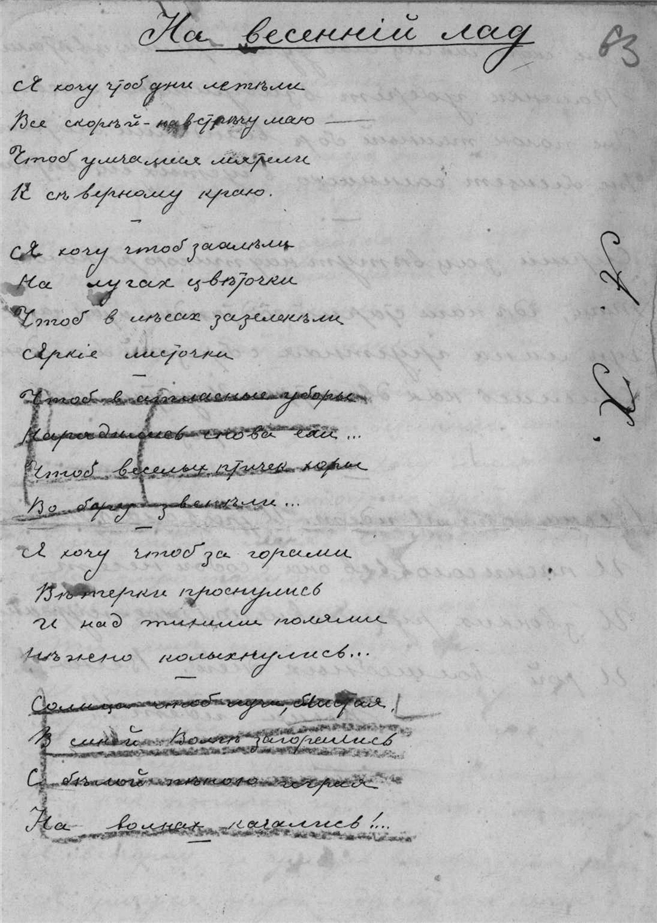 На весеннiй лад
63
Я хочу чтоб дни летѣли
Все скорѣй - навстрѣчу маю —
Чтоб умчалися мятели
К сѣверному краю.
Я хочу чтоб заалѣли
На лугах цвѣточки
Чтоб в лѣсах зазеленѣли
Яркiе листочки
Чтоб в атласные уборы
Нарядились снова ели...
Чтоб веселых птичек хоры
Во бору звенѣли...
Я хочу чтоб за горами
Вѣтерки проснулись
И над тихими полями
Нѣжно колыхнулись...
Солнца чтоб лучи,
В синей Волгѣ загорелись
С бѣлой пѣною играя
На волнах качались!...